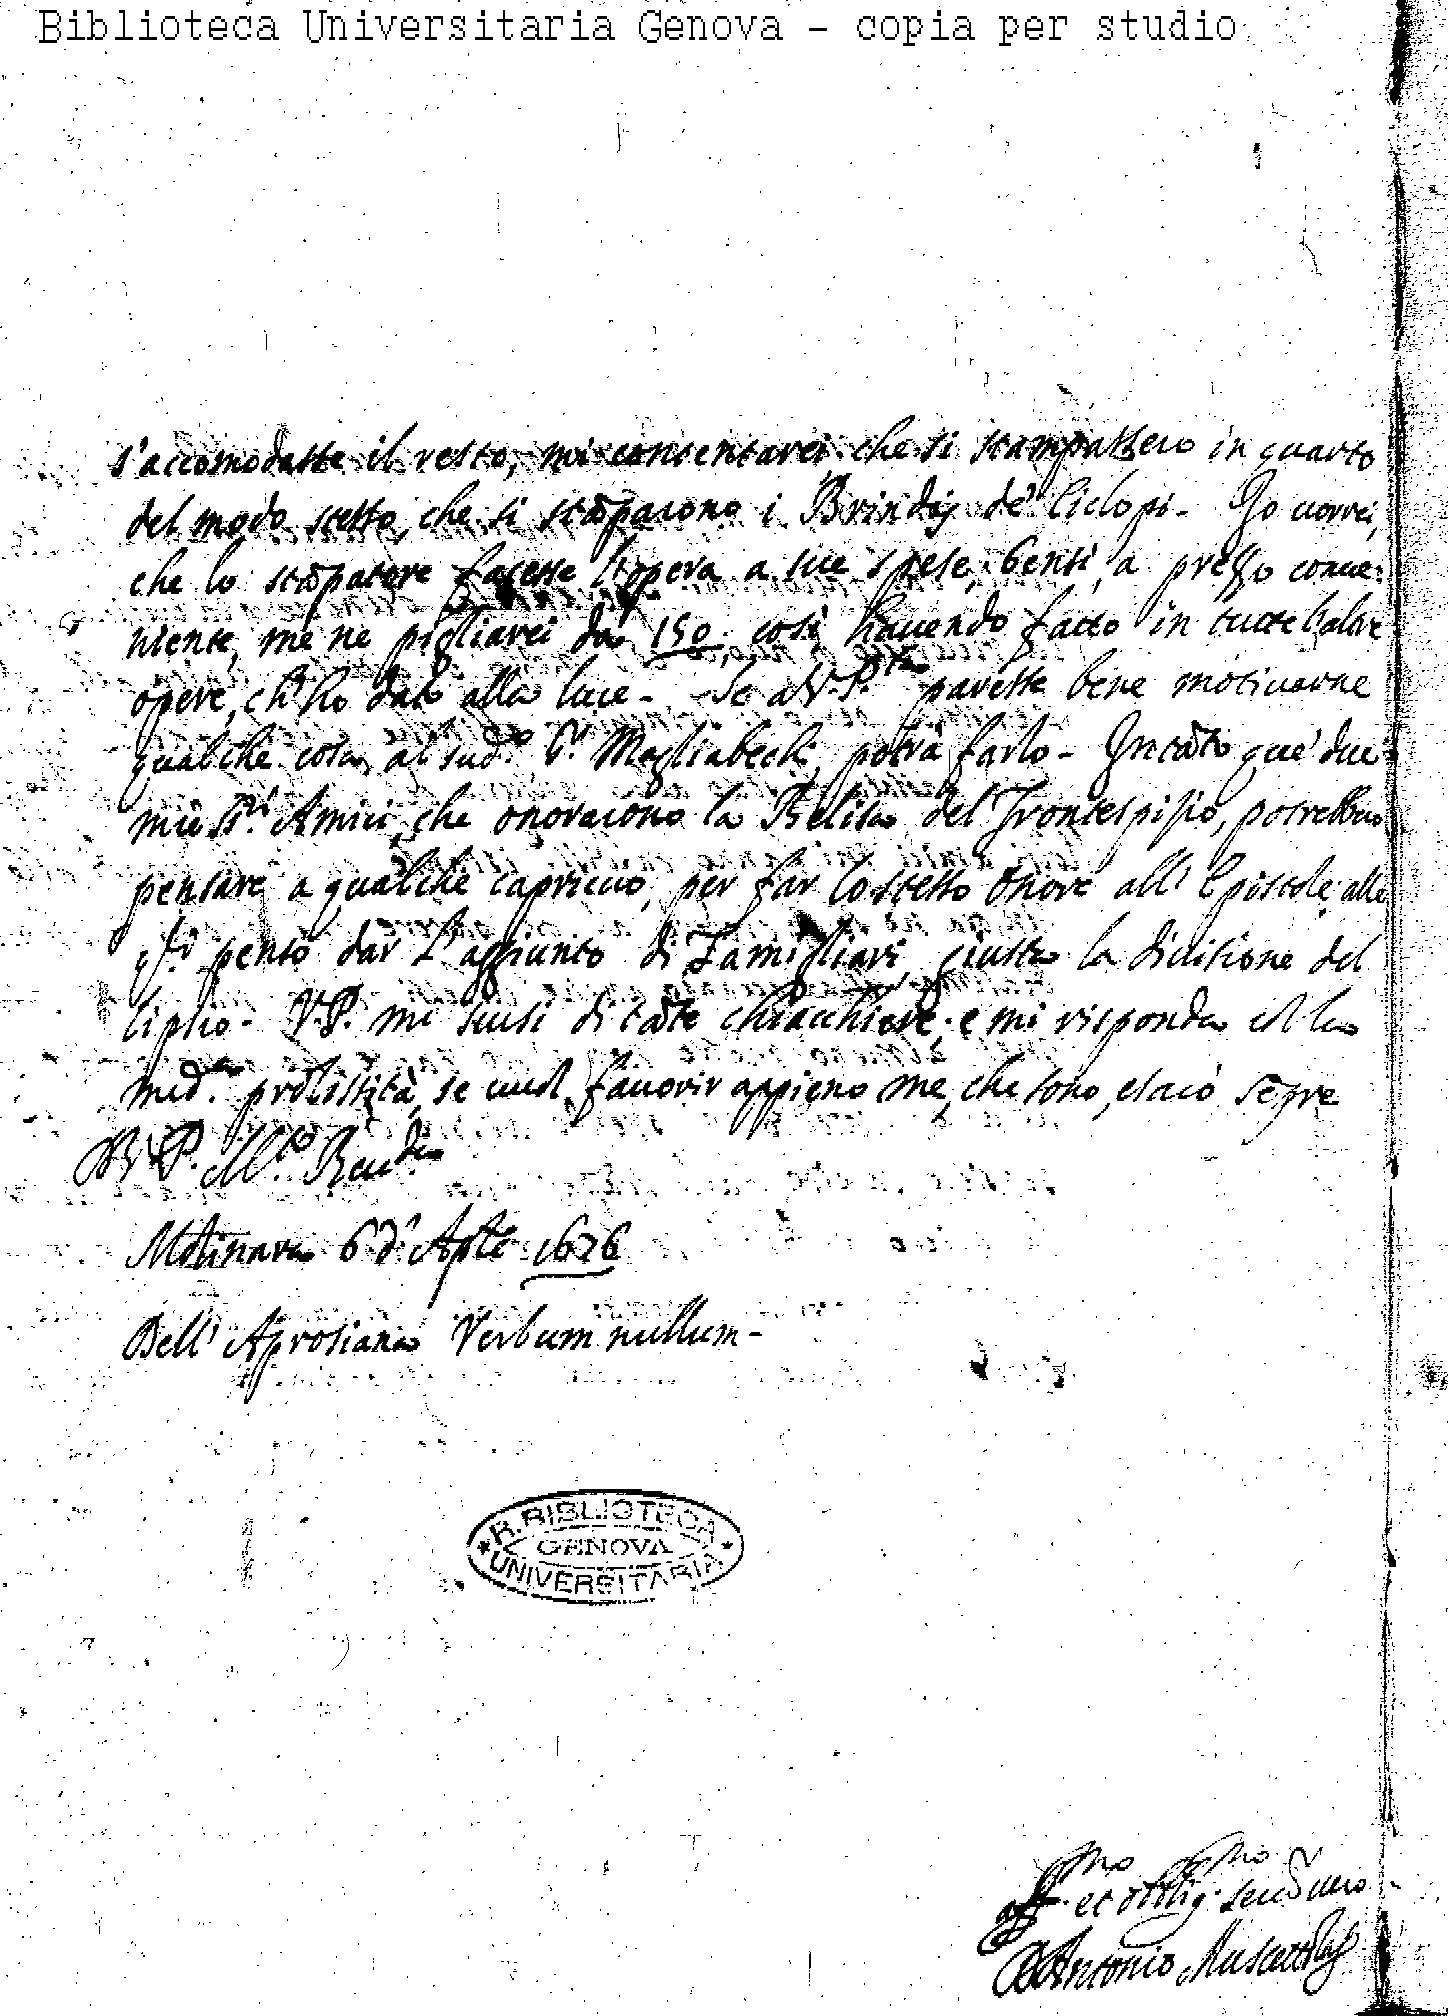 Biblioteca Universitaria Genova - copia per studio
s'accomodasse il resto, mi contentarei, che si stampassero in quarto
del modo stesso, che si stāparono i Brindisj de' Ciclopi. Io vorrei,
che lo stāpatore facesse l'opera a sue spese, bensì, a prezzo conue-
niente, me ne pigliarei da 150, così hauendo fatto in tutte l'altre
opere, ch'ho dato alla luce. Se a V. P.tà paresse bene motiuarne
qualche cosa al sud.o S.r Magliabechi, potrà farlo. Intāto que' due
miei SS.ri Amici, che onorarono la Belisa del Frontespizio, potrebbero
pensare a qualche capriccio, per far lo stesso onore all'Epistole, alle
q.li penso dar l'aggiunto di Famigliari, giusta la diuisione del
Ciplio. V. P. mi scusi di tāte chiacchiere, e mi risponda colla
med.ma prolissità, se vuol fauorir appieno me, che sono, e sarò sēpre
Di V. P. M.to Reu.da
Molinara 6 d'Aple 1676
Dell'Aprosiana Verbum nullum.
R. BIBLIOTECA
GENOVA
UNIVERSITARIA
aff.mo et obblig.mo seru.r vero
D. Antonio Muscettola